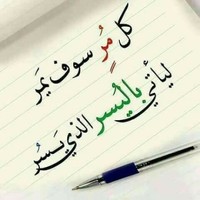 كل مُرٍ سوف يَمر
ليأتي باليُسرِ الذي يَسُر